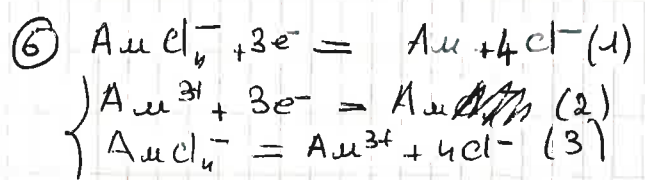 ⑥ AuCl₄⁻ + 3e⁻ = Au + 4Cl⁻ (1)
Au³⁺ + 3e⁻ = Au (2)
AuCl₄⁻ = Au³⁺ + 4Cl⁻ (3)